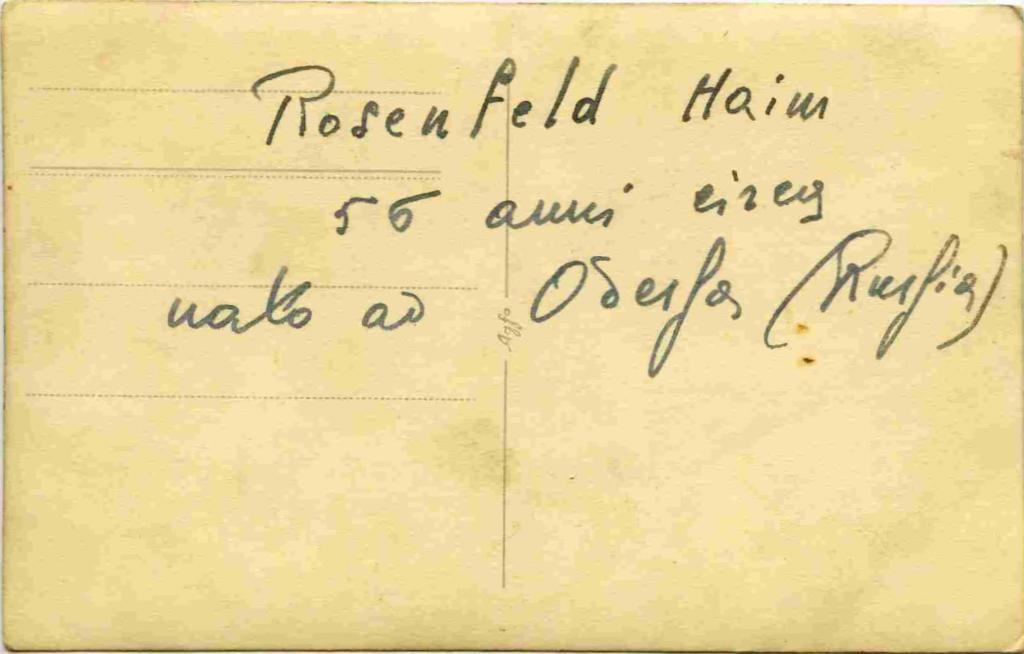 Rosenfeld Haim
56 anni circa
nato ad Odessa (Russia)
Agfa